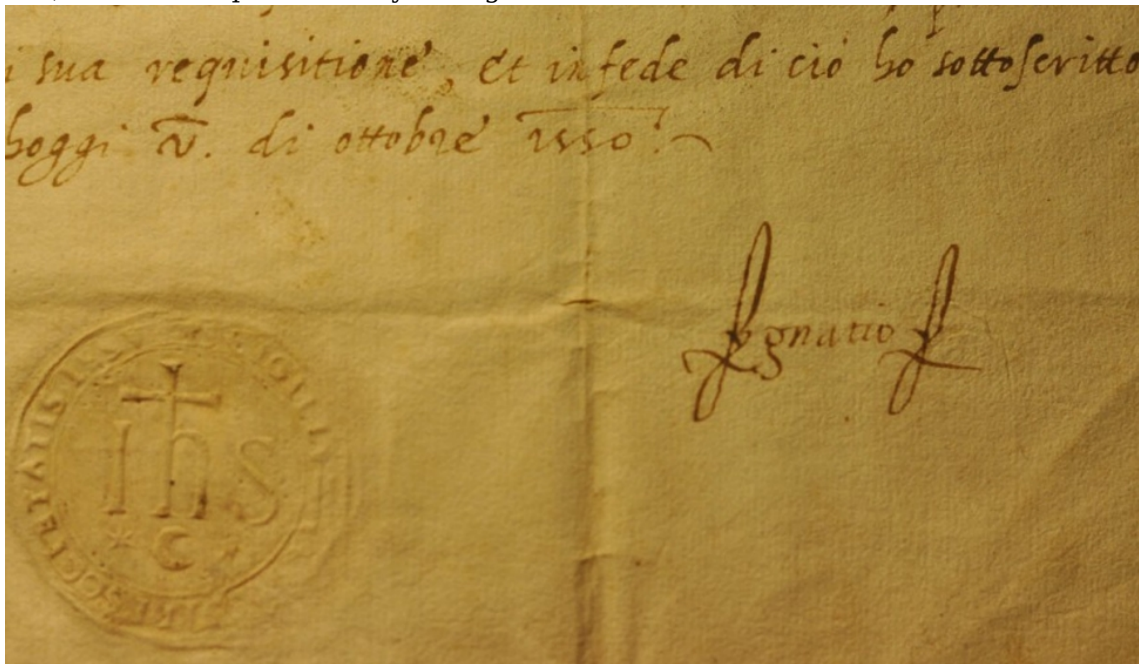 i sua requisitione, Et in fede di ciò ho sottoscritto
hoggi v̄. di ottobre 1550.
Ignatio
Ihs
SOCIETATIS